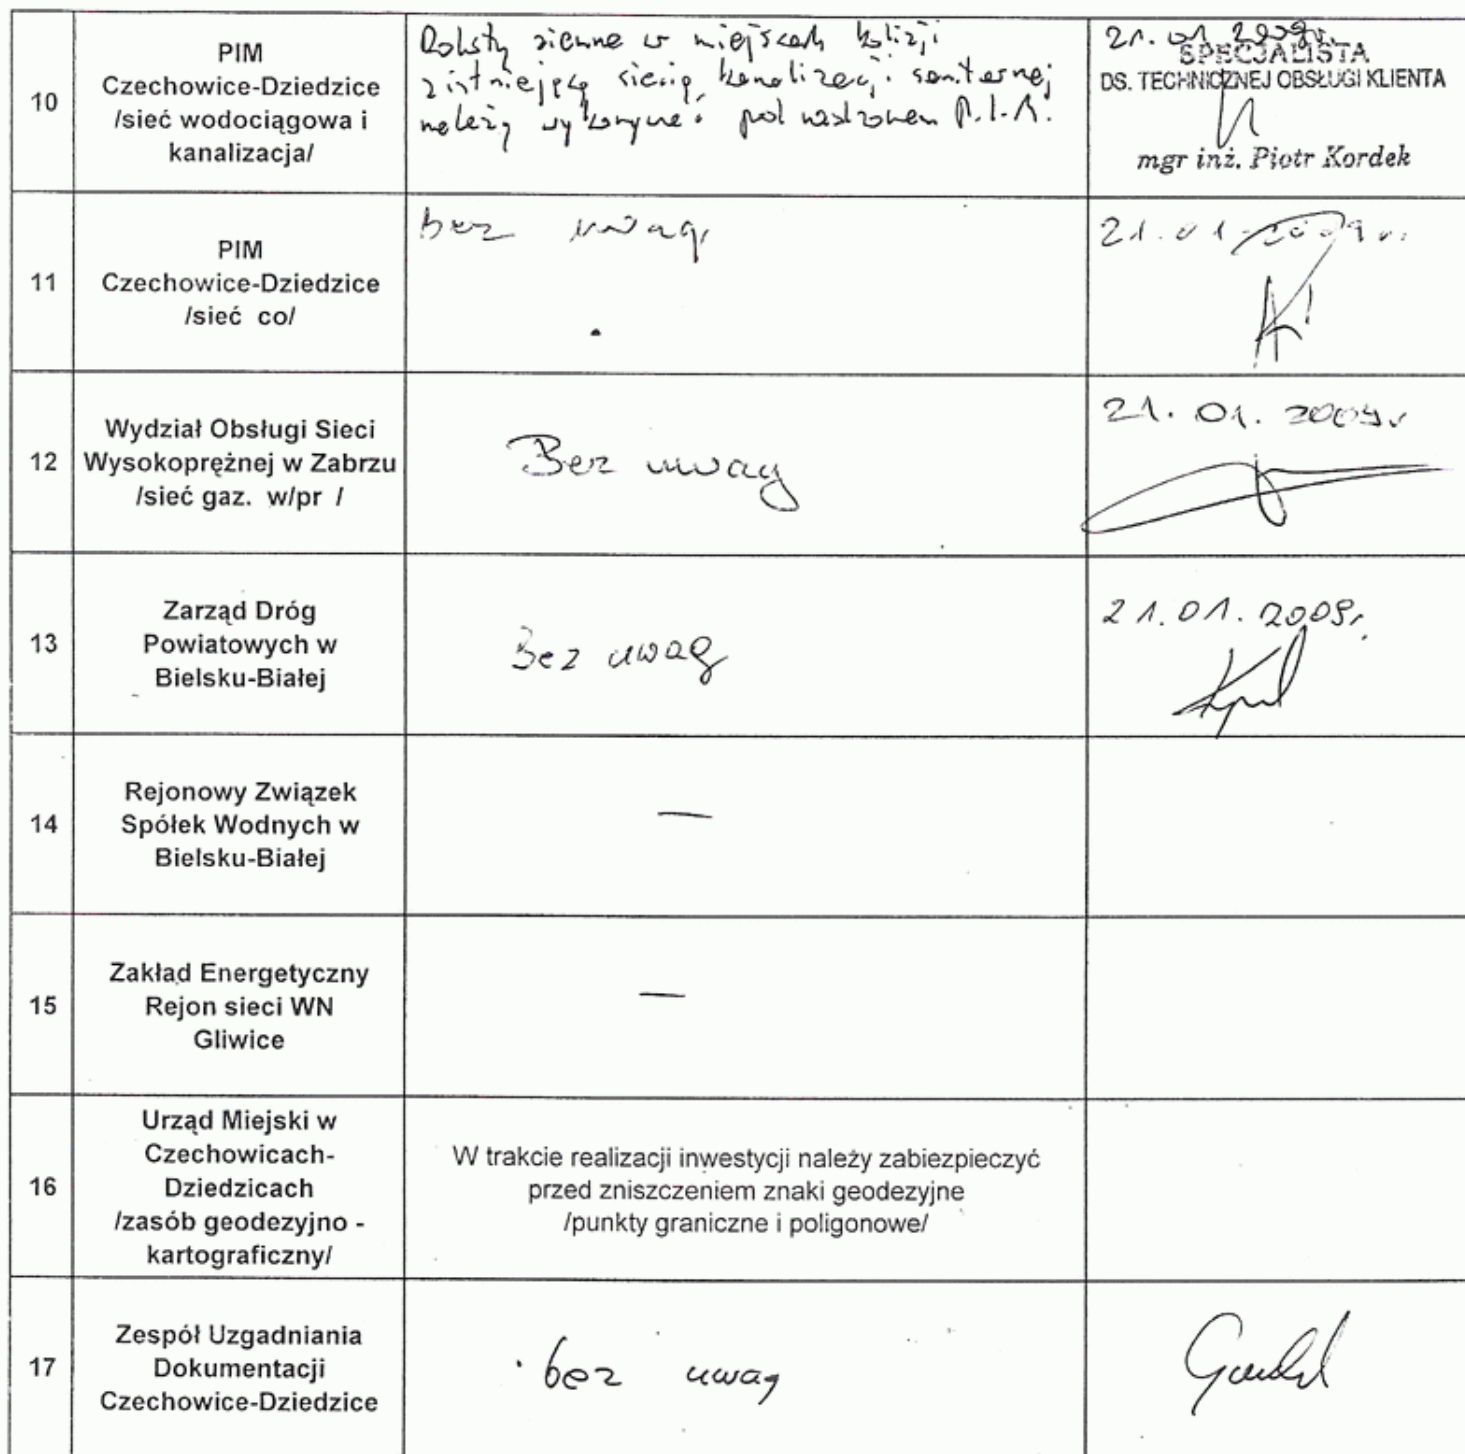 10
PIM
Czechowice-Dziedzice
/sieć wodociągowa i
kanalizacja/
Roboty ziemne w miejscach kolizji
z istniejącą siecią kanalizacji sanitarnej
należy wykonywać pod nadzorem P.I.M.
21.01.2009r.
SPECJALISTA
DS. TECHNICZNEJ OBSŁUGI KLIENTA
mgr inż. Piotr Kordek
11
PIM
Czechowice-Dziedzice
/sieć co/
Bez uwag
21.01.2009r.
12
Wydział Obsługi Sieci
Wysokoprężnej w Zabrzu
/sieć gaz. w/pr /
Bez uwag
21.01.2009r
13
Zarząd Dróg
Powiatowych w
Bielsku-Białej
Bez uwag
21.01.2009r.
14
Rejonowy Związek
Spółek Wodnych w
Bielsku-Białej
—
15
Zakład Energetyczny
Rejon sieci WN
Gliwice
—
16
Urząd Miejski w
Czechowicach-
Dziedzicach
/zasób geodezyjno -
kartograficzny/
W trakcie realizacji inwestycji należy zabiezpieczyć
przed zniszczeniem znaki geodezyjne
/punkty graniczne i poligonowe/
17
Zespół Uzgadniania
Dokumentacji
Czechowice-Dziedzice
bez uwag